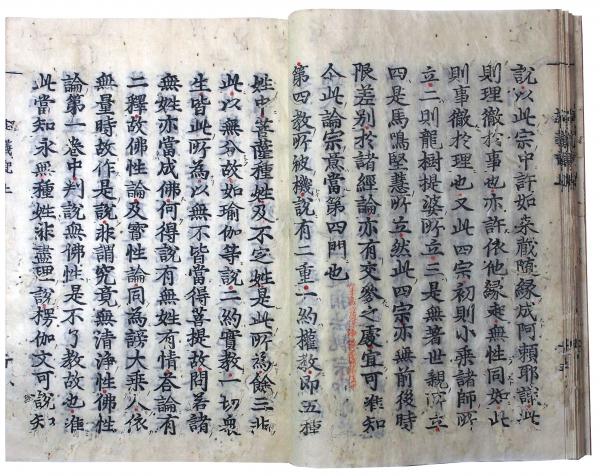 說以此宗中許如来蔵随縁成阿頼耶識此
則理徹於事也亦許依他縁起無性同如此
則事徹於理也又此四宗初則小乗諸師所
立二則龍樹提婆所立三是無著世親所立
四是馬鳴堅慧所立然此四宗亦無前後時
限差別於諸経論亦有交参之處宜可准知
今此論宗意當第四門也
第四教所被機說有二重一約權教即五種
姓中菩薩種姓及不定姓是此所為餘三非
此以無分故如瑜伽等說二約實教一切衆
生皆此所為以無不皆當得菩提故問若諸
無姓亦當成佛何得說有無姓有情荅論有
二釋故佛性論及寳性論同為謗大乗人依
無量時故作是說非謂究竟無清浄性佛性
論第一巻中判說無佛性是不了教故也准
此當知永無種姓非盡理說楞伽文可說矣